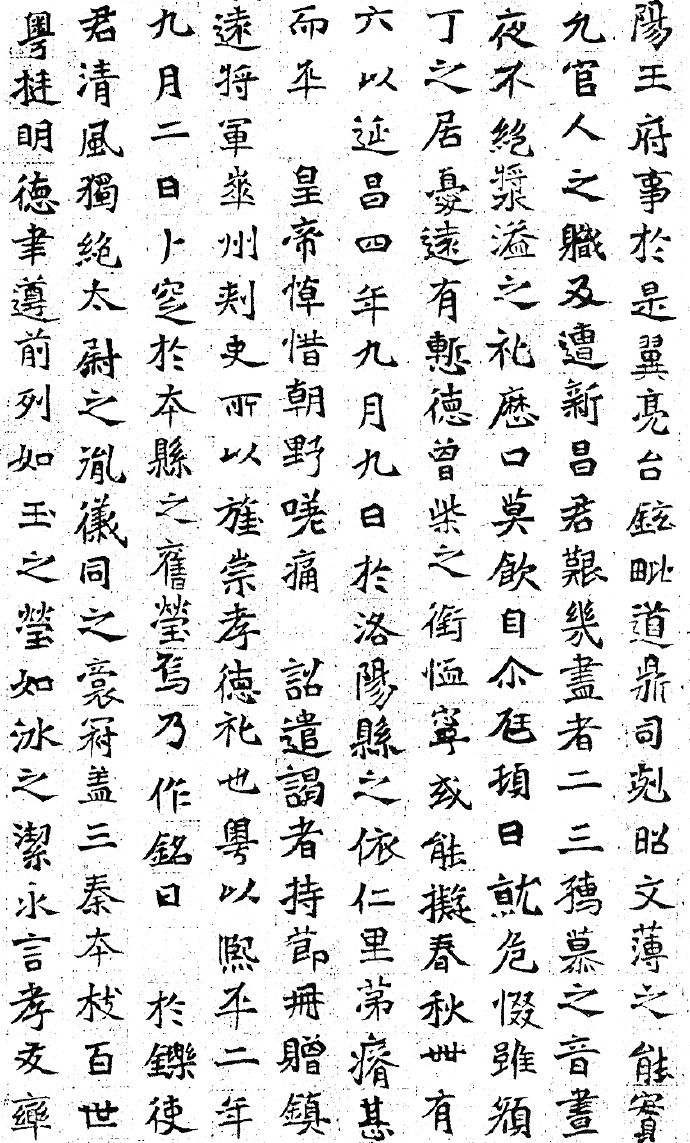 陽王府事於是翼亮台鉉毗道鼎司剋昭文薄之能寔
允官人之職及遭新昌君艱幾盡者二三孺慕之音晝
夜不絕漿溢之礼歷口莫飲自尒尫頓日就危惙雖顏
丁之居憂遠有慙德曾柴之銜恤寧或能擬春秋卌有
六以延昌四年九月九日於洛陽縣之依仁里第瘠甚
而卒 皇帝悼惜朝野嗟痛 詔遣謁者持節冊贈鎮
遠將軍華州刾史所以旌崇孝德礼也粵以熙平二年
九月二日卜窆於本縣之舊塋焉乃作銘曰 於鑠使
君清風獨絕太尉之胤儀同之裔冠盖三秦本枝百世
粵挺明德聿遵前列如玉之瑩如冰之潔永言孝友率